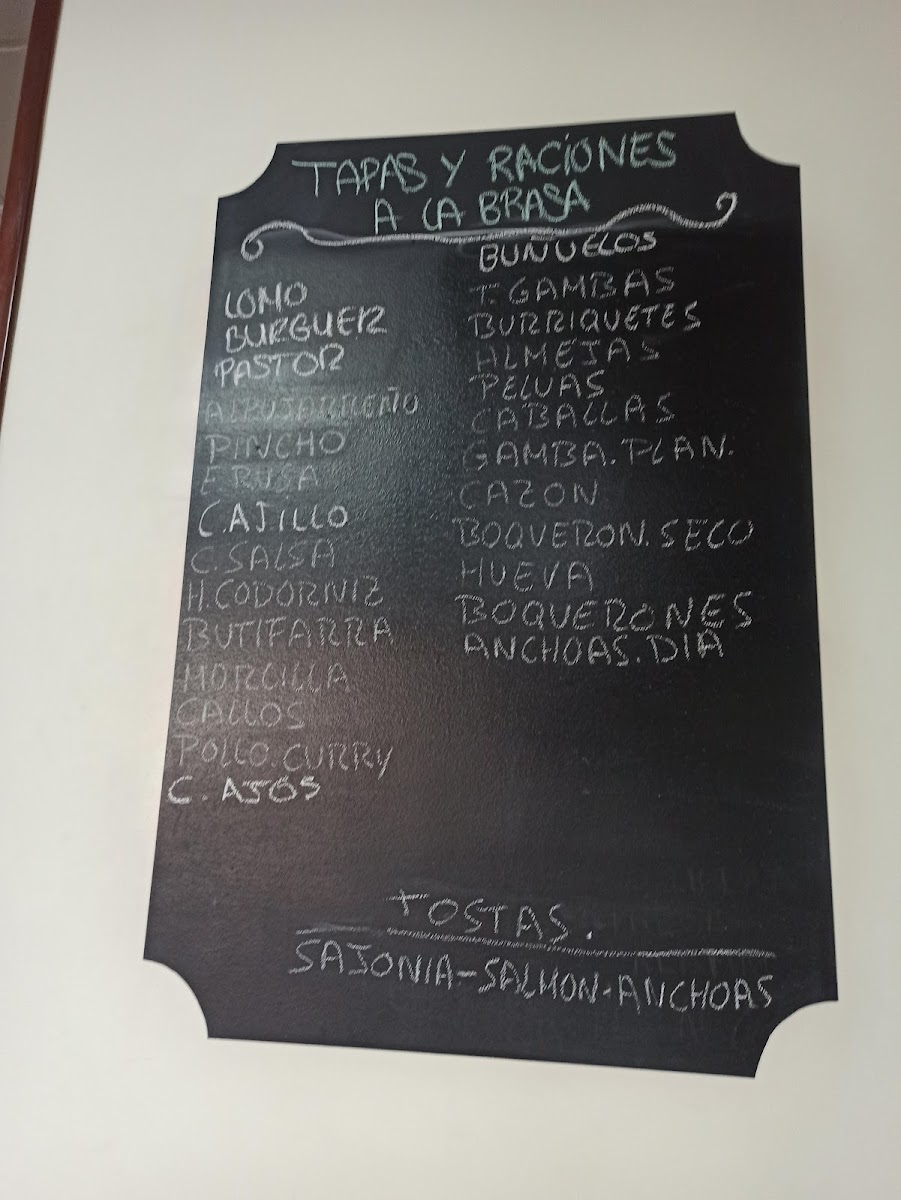 TAPAS Y RACIONES
A LA BRASA
LOMO
BURGUER
PASTOR
ALPUJARREÑO
PINCHO
E RUSA
C.AJILLO
C.SALSA
H.CODORNIZ
BUTIFARRA
MORCILLA
CALLOS
POLLO.CURRY
C. AJOS
BUÑUELOS
T.GAMBAS
BURRIQUETES
ALMEJAS
PELUAS
CABALLAS
GAMBA.PLAN.
CAZON
BOQUERON.SECO
HUEVA
BOQUERONES
ANCHOAS.DIA
TOSTAS.
SAJONIA-SALMON-ANCHOAS